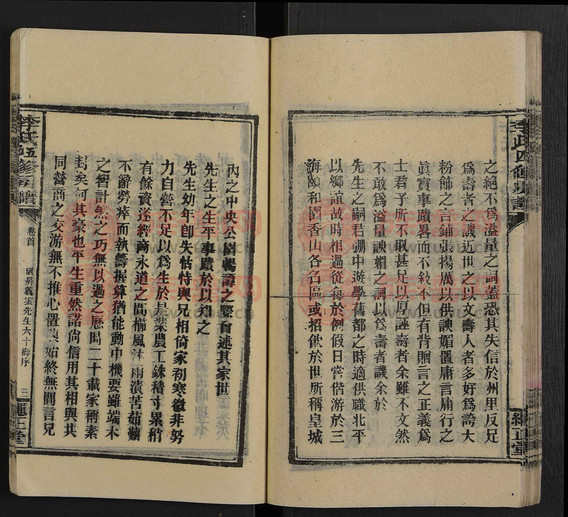 李氏四修房譜
之絕不爲溢量之詞蓋恐其失信於州里反兄
爲壽者之譏近世之以文壽人者多好爲誇大
粉飾之言鋪張揚厲以供諛媚匿庸言庸行之
眞實事蹟畧而不敘不但有背贈言之正義爲
士君子所不取甚且以厚誣壽者余雖不文然
不敢爲溢量諛媚之詞以爲壽者譏余於
先生之嗣君弸中游學舊都之時適供職北平
以鄉誼故時相過從每於例假日嘗偕游於三
海頤和園香山各名區或招飮於世所稱皇城
繩正堂
內之中央公園觴壽之慶者述其家世
先生之生平事蹟於以知之
先生幼年卽失怙恃與兄相倚家初寒儉非努
力自營不足以爲生於是業農工銖積寸累稍
有餘資遂經商永道之間櫛風沐雨漬苦茹櫱
不辭勞瘁而執籌握算猶能動中機要雖端木
之智計然之巧無以過之歷時二十載家稱素
封矣何其豪也平生重然諾尙信用其相與其
同營商之交游無不推心置腹始終無間言兄
李氏五修房譜
卷首
義雲先生六十壽序
三
繩正堂